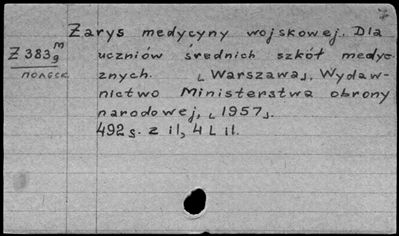 Zarys medycyny wojskowej. Dla
Z 383 m/9
uczniów średnich szkół medycznych. ⌞Warszawa⌟, Wydaw-
nictwo Ministerstwa obrony
narodowej, ⌞1957⌟.
492 s. z il, 4 L il.